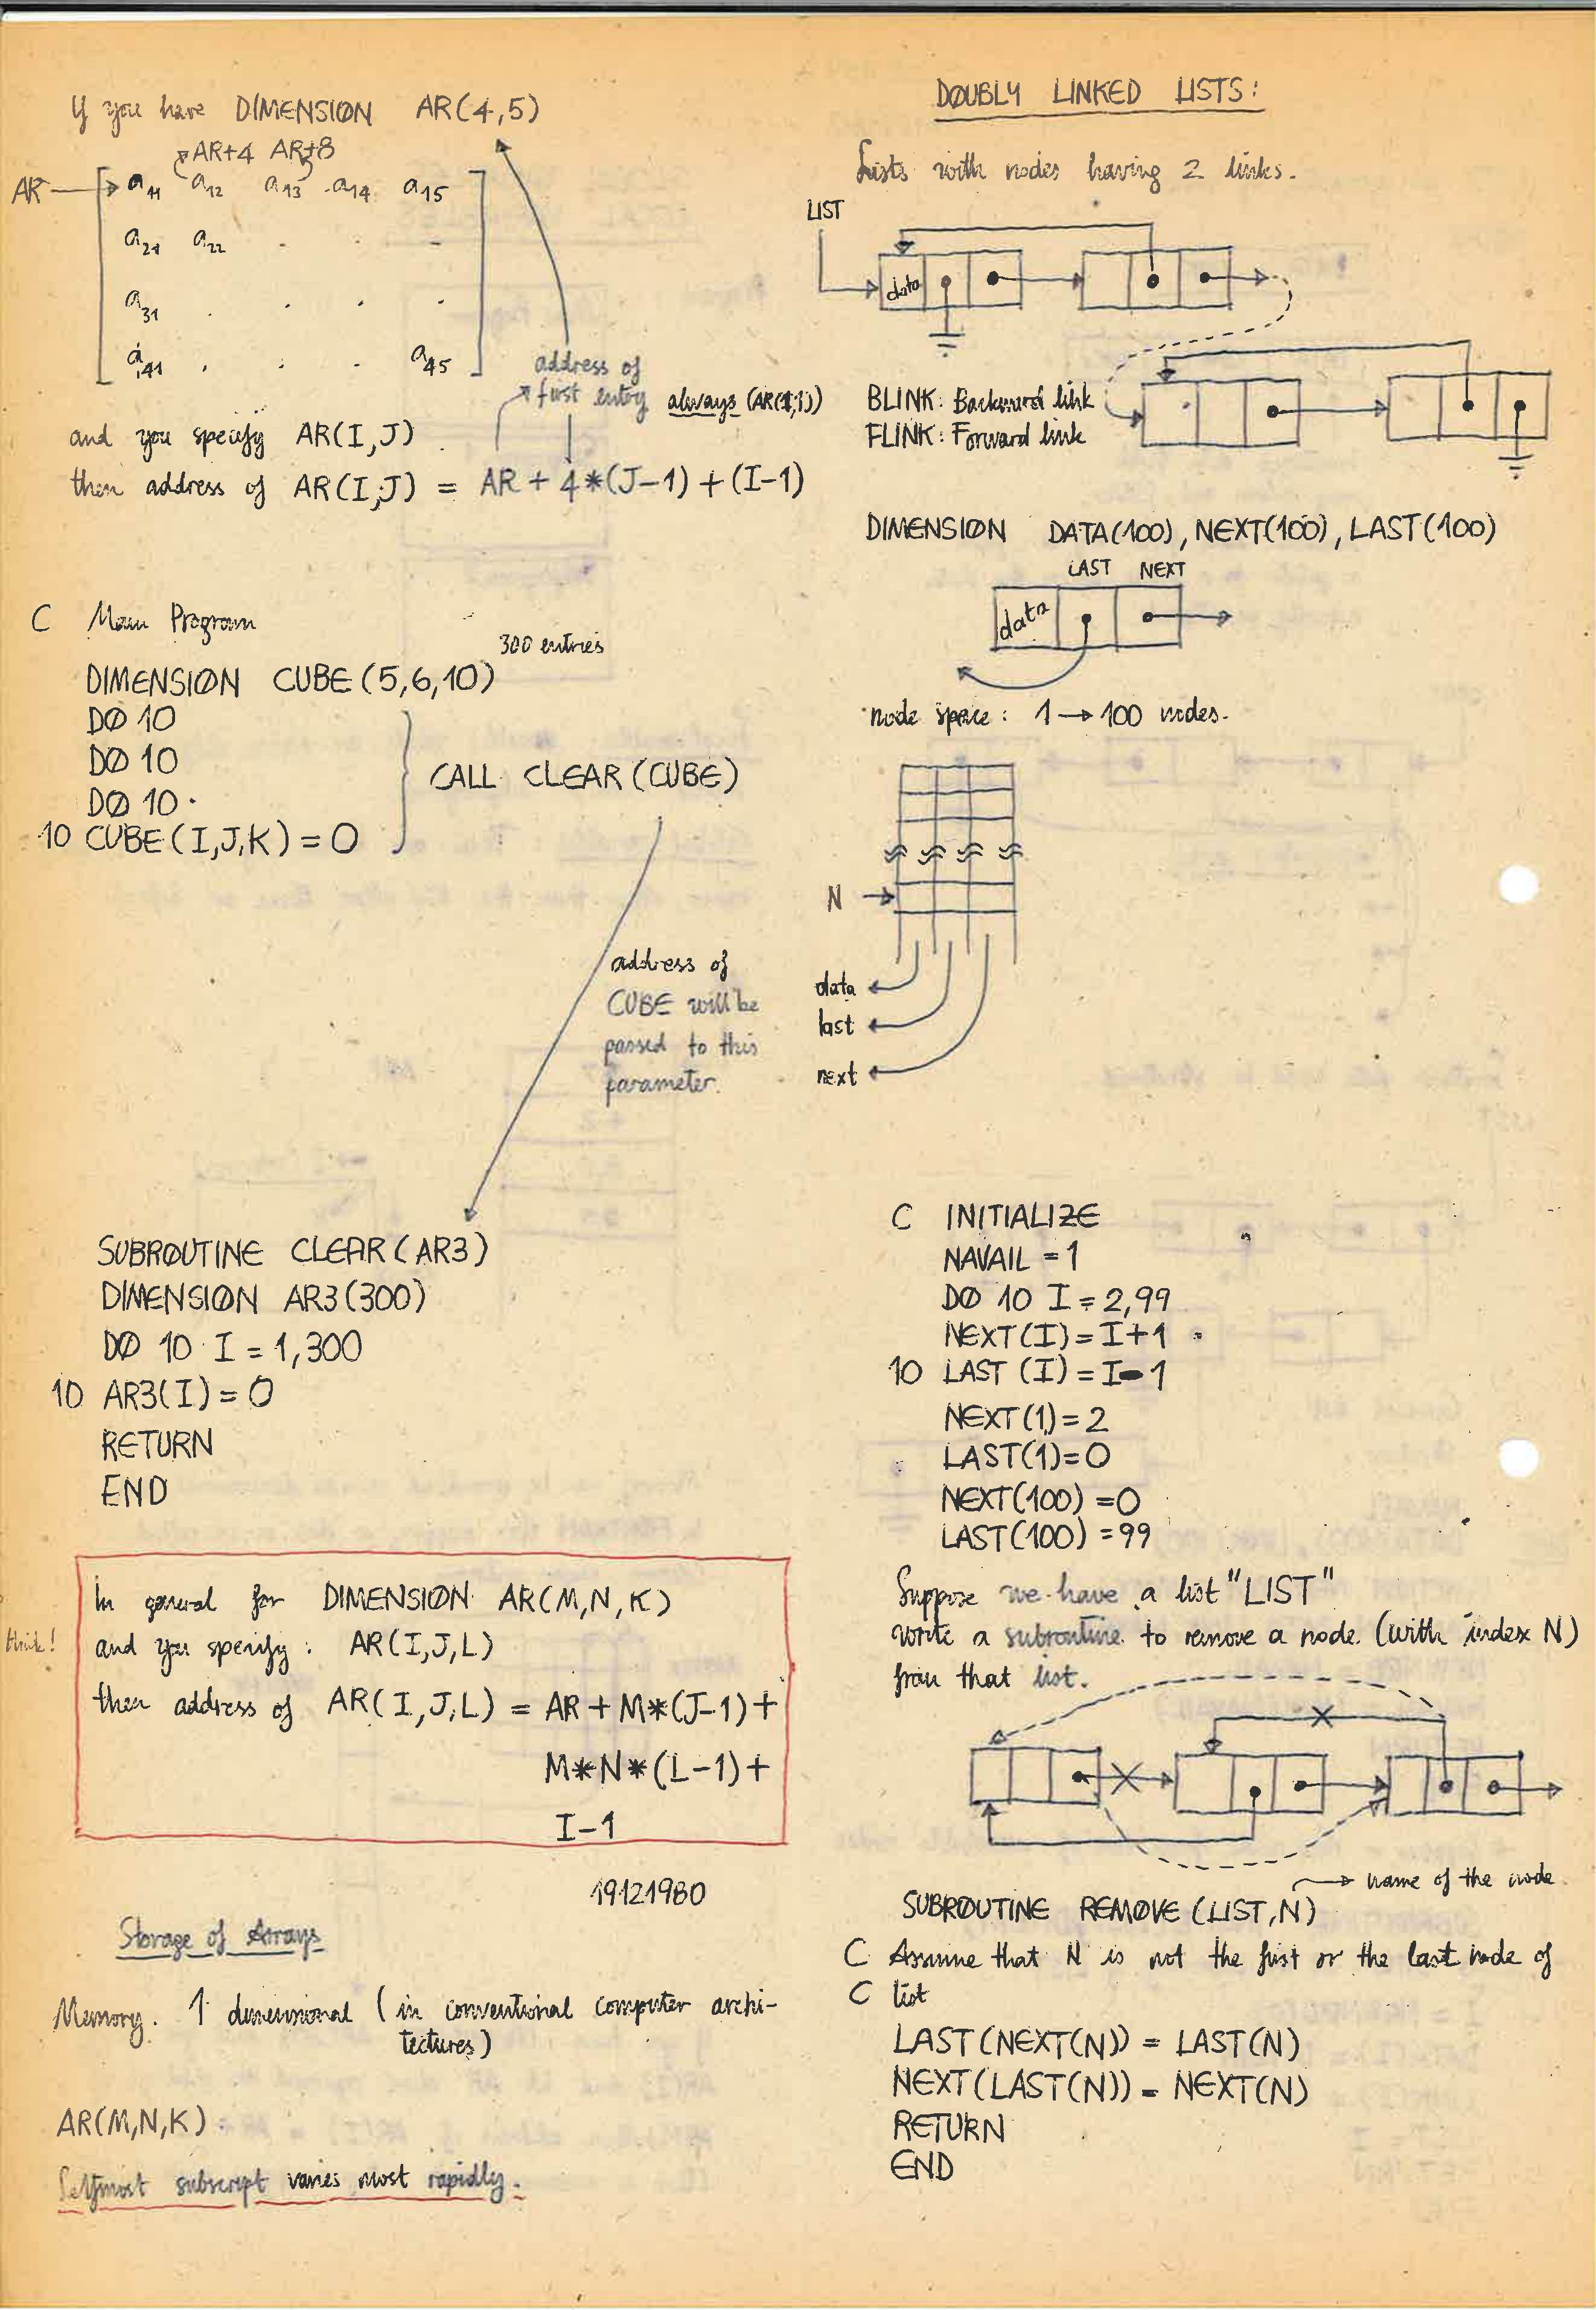 If you have DIMENSION AR(4,5)
AR+4 AR+8
AR a11 a12 a13 a14 a15
a21 a22 . . -
a31 . . . .
a41 . . . a45
address of
first entry always (AR(1,1))
and you specify AR(I,J)
then address of AR(I,J) = AR + 4*(J-1) + (I-1)
C Main Program
300 entries
DIMENSION CUBE(5,6,10)
DØ 10
DØ 10
DØ 10
10 CUBE(I,J,K) = 0
CALL CLEAR(CUBE)
address of
CUBE will be
passed to this
parameter.
SUBRØUTINE CLEAR(AR3)
DIMENSION AR3(300)
DØ 10 I = 1,300
10 AR3(I) = 0
RETURN
END
think!
In general for DIMENSIØN AR(M,N,K)
and you specify: AR(I,J,L)
then address of AR(I,J,L) = AR + M*(J-1) +
M*N*(L-1) +
I-1
19121980
Storage of Arrays
Memory. 1 dimensional (in conventional computer archi-
tectures)
AR(M,N,K).
Leftmost subscript varies most rapidly.
DØUBLY LINKED LISTS:
Lists with nodes having 2 links.
LIST
data
BLINK: Backward link
FLINK: Forward link
DIMENSIØN DATA(100), NEXT(100), LAST(100)
LAST NEXT
data
node space: 1 → 100 nodes.
N →
data
last
next
C INITIALIZE
NAVAIL = 1
DØ 10 I = 2,99
NEXT(I) = I+1
10 LAST (I) = I-1
NEXT(1) = 2
LAST(1) = 0
NEXT(100) = 0
LAST(100) = 99
Suppose we have a list "LIST"
write a subroutine to remove a node. (with index N)
from that list.
name of the node
SUBRØUTINE REMØVE (LIST,N)
C Assume that N is not the first or the last node of
C list
LAST(NEXT(N)) = LAST(N)
NEXT(LAST(N)) = NEXT(N)
RETURN
END